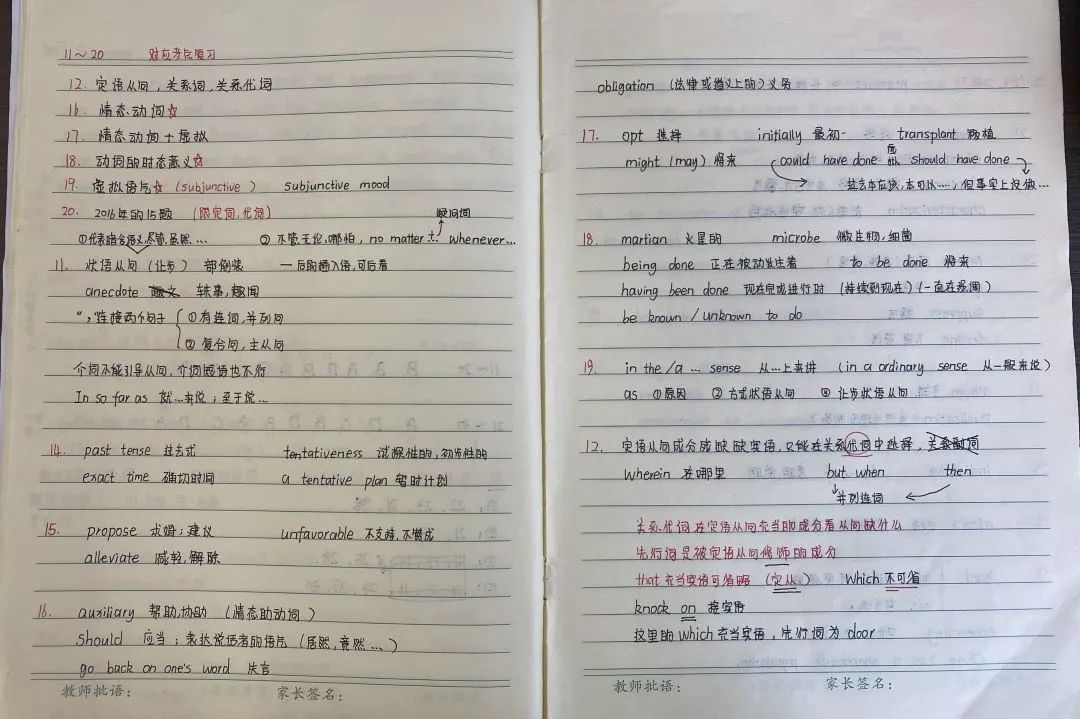 11~20 对应考点复习
12. 定语从句,关系词,关系代词
16. 情态动词☆
17. 情态动词+虚拟
18. 动词的时态意义☆
19. 虚拟语气☆ (subjunctive) subjunctive mood
20. 2016年的15题 (限定词,代词)
疑问词
①代表暗含语义,尽管,虽然... ② 不管,无论,哪怕, no matter whenever...
11. 状语从句(让步) 部倒装 一后的插入语,可后看
anecdote 轶事,趣闻
“,”连接两个句子 ①有连词,并列句
② 复合句,主从句
介词不能引导从句,介词短语也不行
In so far as 就...来说;至于说...
14. past tense 过去式 tentativeness 试探性的,初步性的
exact time 确切时间 a tentative plan 暂时计划
15. propose 求婚;建议 unfavorable 不支持,不赞成
alleviate 减轻,解除
16. auxiliary 帮助,协助 (情态助动词)
should 应当;表达说话者的语气(居然,竟然...)
go back on one's word 失言
教师批语: 家长签名:
obligation (法律或道义上的)义务
17. opt 选择 initially 最初 transplant 移植
might (may) 将来 could have done 虚拟 should have done
过去本应该,本可以....;但事实上没做...
18. martian 火星的 microbe 微生物,细菌
being done 正在被动发生着 to be done 将来
having been done 现在完成进行时 (持续到现在)(一直在强调)
be known / unknown to do
19. in the /a ... sense 从...上来讲 (in a ordinary sense 从一般来说)
as ①原因 ② 方式状语从句 ③ 让步状语从句
12. 定语从句成分残缺缺宾语,只能在关系代词中选择,关系副词
wherein 在哪里 but when then
并列连词
关系代词在定语从句充当的成分看从句缺什么
先行词是被定语从句修饰的成分
that充当宾语可省略 (定从) Which 不可省
knock on 接宾语
这里的which充当宾语,先行词为door
教师批语: 家长签名: